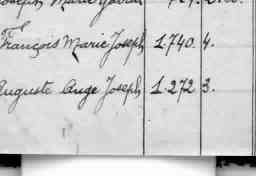 Joseph Marie
François Marie Joseph 1.740. 4.
Auguste Ange Joseph 1.272 3.